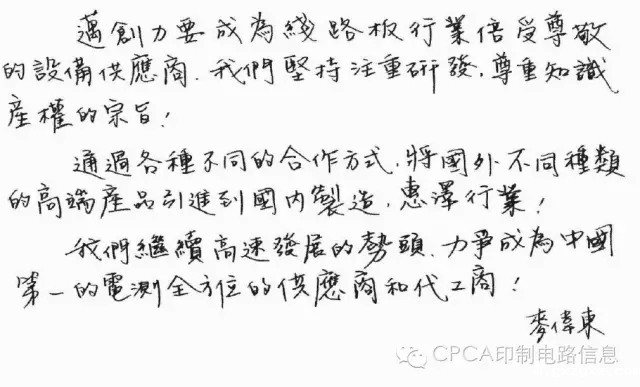 邁創力要成為綫路板行業倍受尊敬
的設備供應商．我們堅持注重研發，尊重知識
産權的宗旨！
通過各種不同的合作方式，將國外不同種類
的高端産品引進到國内製造，惠澤行業！
我們繼續高速發展的勢頭．力爭成為中國
第一的電測全方位的供應商和代工商！
麥偉東
CPCA印制电路信息